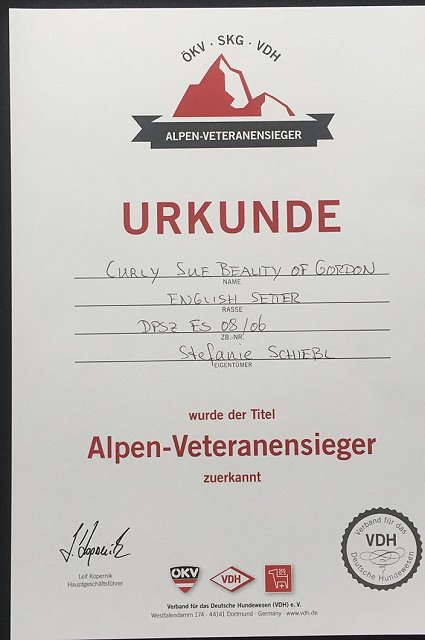 ÖKV · SKG · VDH
ALPEN-VETERANENSIEGER
URKUNDE
CURLY SUE BEALITY OF GORDON
NAME
ENGLISH SETTER
RASSE
DPSZ ES 08/06
ZB.-NR.
Stefanie SCHIEBL
EIGENTÜMER
wurde der Titel
Alpen-Veteranensieger
zuerkannt
Leif Kopernik
Hauptgeschäftsführer
ÖKV
VDH
Verband für das
VDH
Deutsche Hundewesen
Verband für das Deutsche Hundewesen (VDH) e. V.
Westfalendamm 174 · 44141 Dortmund · Germany · www.vdh.de